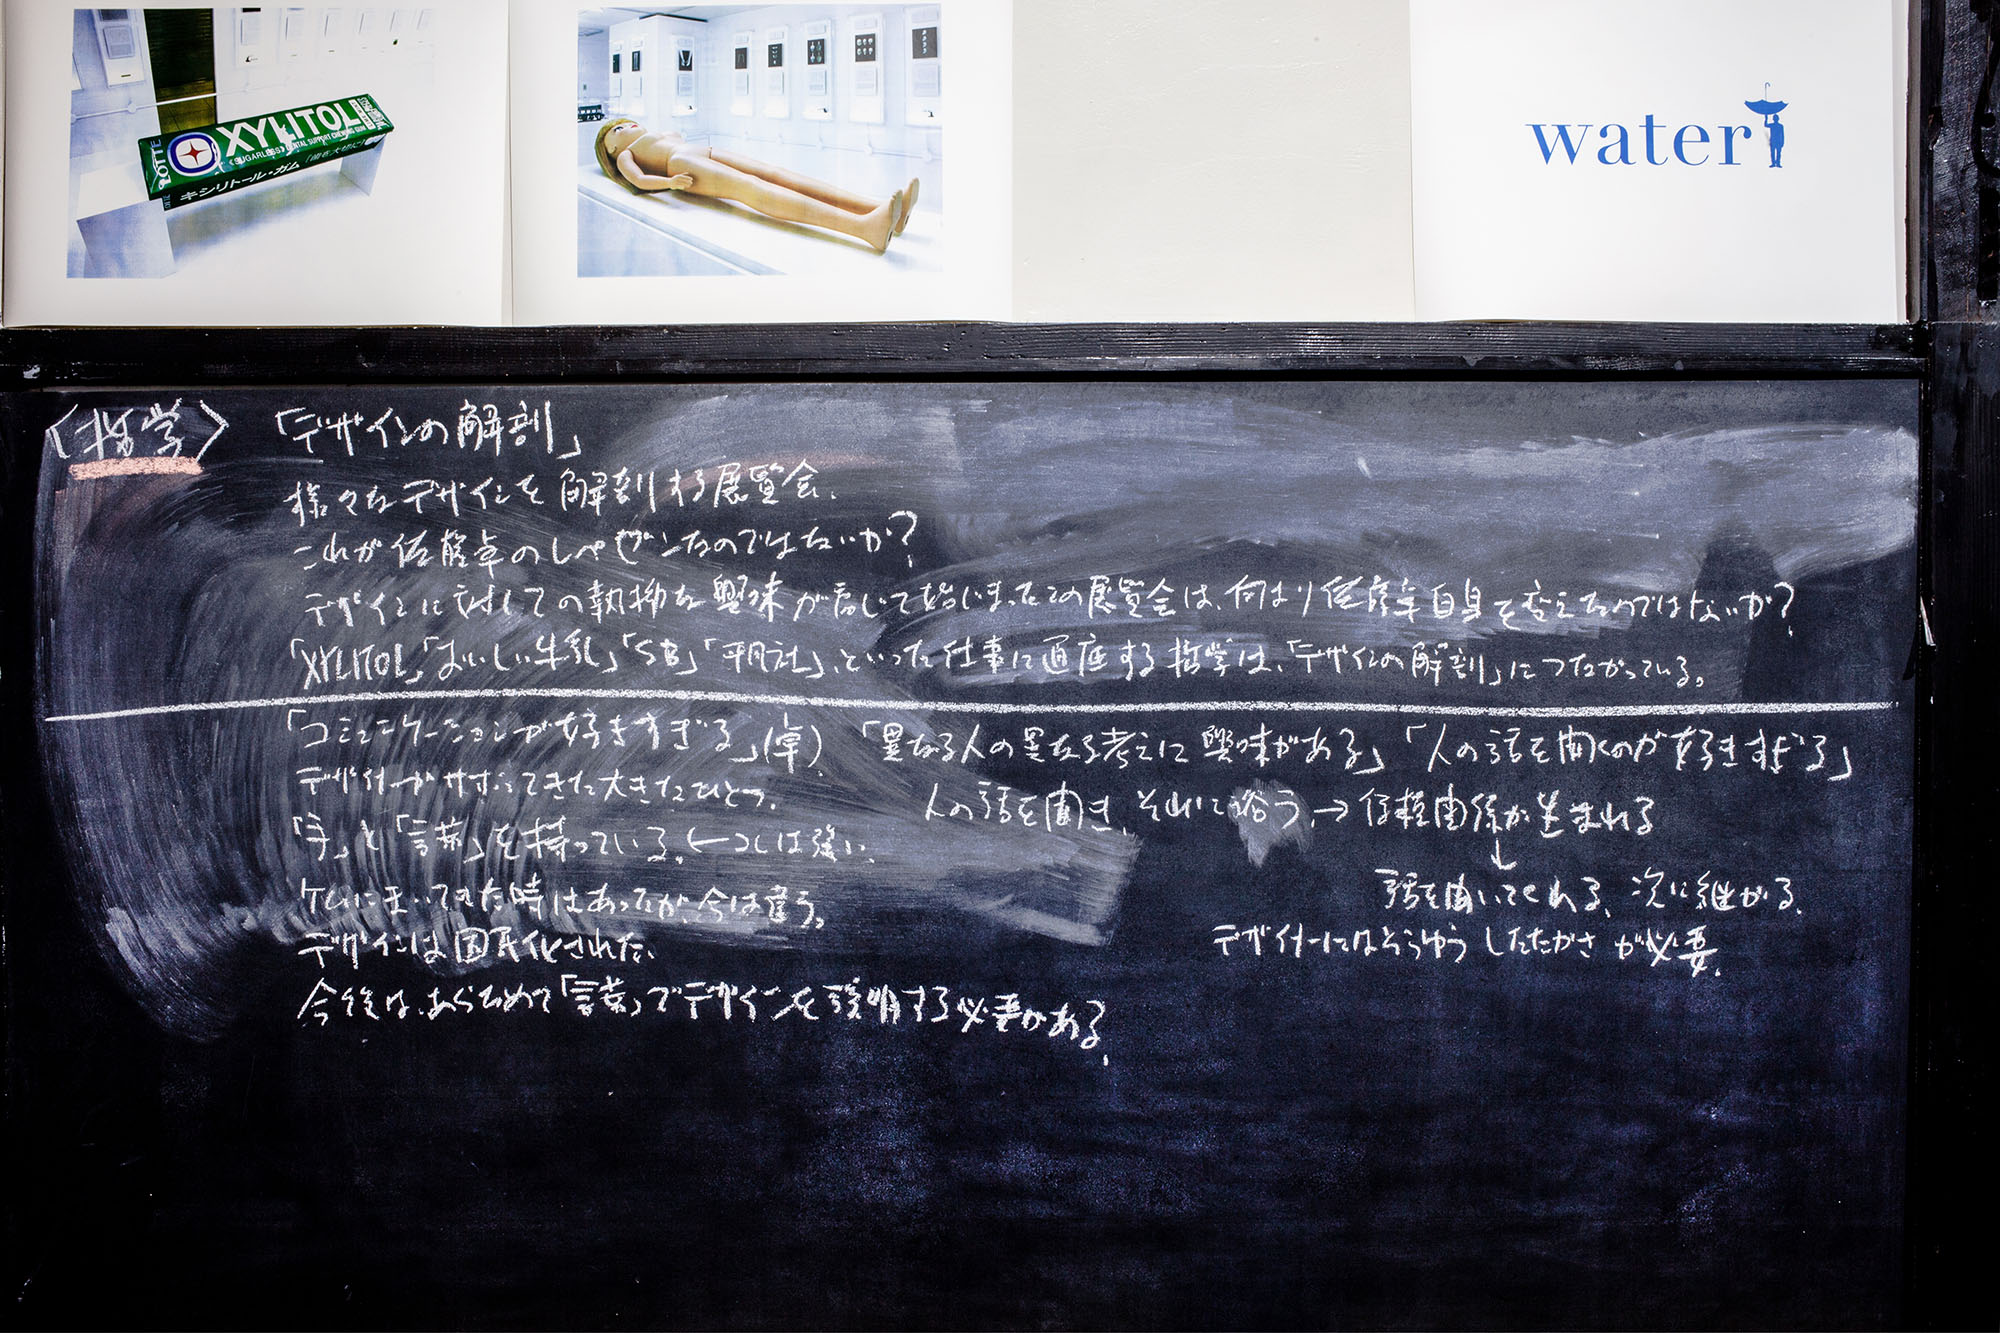 LOTTE XYLITOL
〈SUGARLESS〉 DENTAL SUPPORT CHEWING GUM
キシリトール・ガム
water
〈哲学〉 「デザインの解剖」
様々なデザインを解剖する展覧会。
これが佐藤卓のレペゼンなのではないか?
デザインに対しての執拗な興味が高じて始まったこの展覧会は、何より佐藤卓自身を変えたのではないか?
「XYLITOL」「おいしい牛乳」「SB」「平凡社」、といった仕事に通底する哲学は、「デザインの解剖」につながっている。
「コミュニケーションが好きすぎる」(卓) 「異なる人の異なる考えに興味がある」 「人の話を聞くのが好きすぎる」
デザイナーがサボってきた大きなひとつ。
人の話を聞き、それに沿う、→ 信頼関係が生まれる
「手」と「言葉」を持っている。←つくしは強い。
↓
話を聞いてくれる、次に継がる。
ケムにまいてきた時はあったが、今は違う。
デザイナーにはそうゆう したたかさ が必要。
デザインは国民化された。
今後は、あらためて「言葉」でデザインを説明する必要がある。